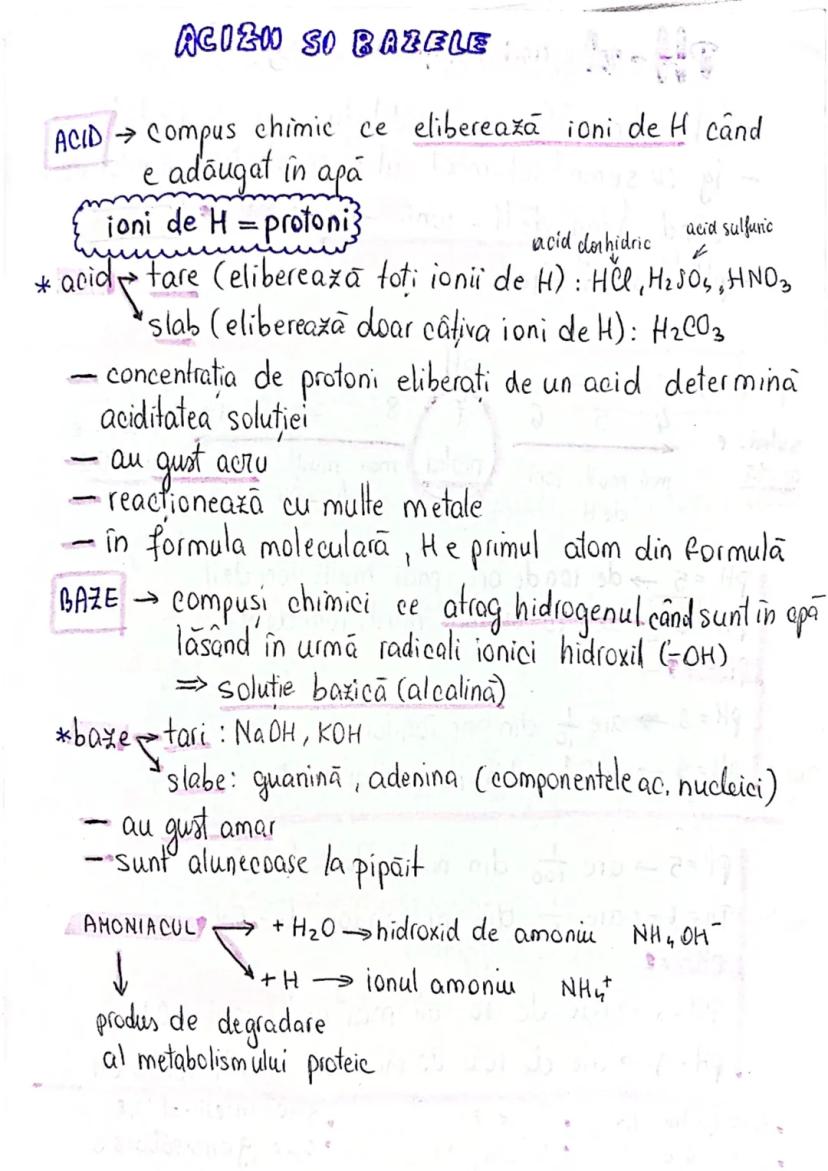 ACIZII SI BAZELE
ACID → compus chimic ce eliberează ioni de H când
e adăugat în apă
ioni de H = protoni
acid clorhidric
acid sulfuric
* acid → tare (eliberează toți ionii de H) : HCl, H2SO4, HNO3
slab (eliberează doar câțiva ioni de H): H2CO3
- concentrația de protoni eliberați de un acid determină
aciditatea soluției
- au gust acru
- reacționează cu multe metale
- în formula moleculară, H e primul atom din formulă
BAZE → compuși chimici ce atrag hidrogenul când sunt în apă
lăsând în urmă radicali ionici hidroxil (-OH)
⇒ soluție bazică (alcalină)
* baze → tari : NaOH, KOH
slabe: guanină, adenina (componentele ac. nucleici)
- au gust amar
- sunt alunecoase la pipăit
AMONIACUL → + H2O → hidroxid de amoniu NH4OH⁻
+ H → ionul amoniu NH4⁺
↓
produs de degradare
al metabolismului proteic